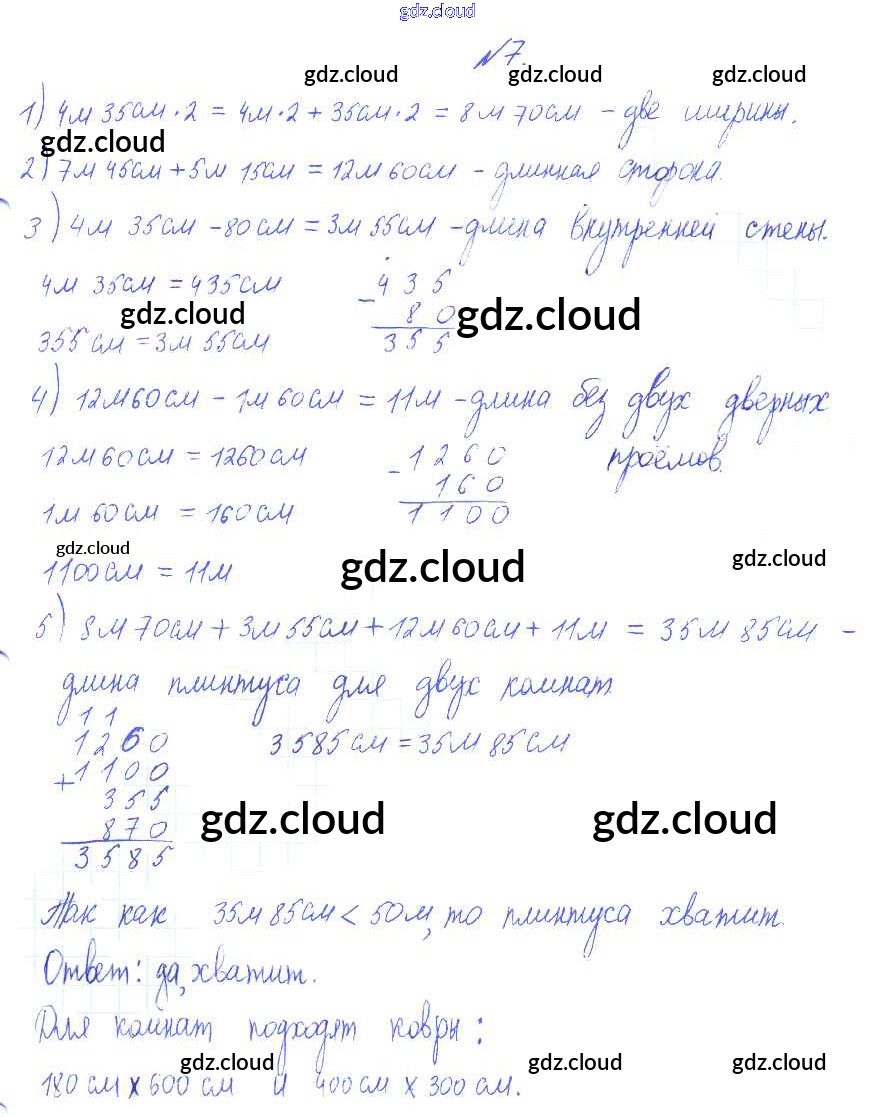 gdz.cloud
№7.
gdz.cloud gdz.cloud gdz.cloud
1) 4м 35см·2 = 4м·2 + 35см·2 = 8м 70см - две ширины.
gdz.cloud
2) 7м 45см + 5м 15см = 12м 60см - длинная сторона.
3) 4м 35см - 80см = 3м 55см - длина внутренней стены.
4м 35см = 435см - 435
gdz.cloud 80 gdz.cloud
355см = 3м 55см 355
4) 12м 60см - 1м 60см = 11м - длина без двух дверных
12м 60см = 1260см - 1260 проёмов.
160
1м 60см = 160см 1100
gdz.cloud gdz.cloud gdz.cloud
1100см = 11м
5) 8м 70см + 3м 55см + 12м 60см + 11м = 35м 85см -
длина плинтуса для двух комнат
11
1260 3585см = 35м 85см
+ 1100
355
870 gdz.cloud gdz.cloud
3585
Так как 35м 85см < 50м, то плинтуса хватит.
Ответ: да, хватит.
Для комнат подходят ковры:
gdz.cloud gdz.cloud gdz.cloud
180 см х 600 см и 400 см х 300 см.